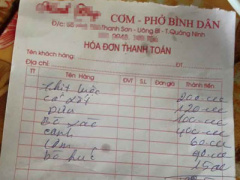 CƠM - PHỞ BÌNH DÂN
Thanh Sơn - Uông Bí - T.Quảng Ninh
HÓA ĐƠN THANH TOÁN
Tên khách hàng:
Địa chỉ
TT Tên Hàng ĐVT S.L Đơn giá Thành tiền
Thịt luộc 200.000
120.000
Dưa 100.000
Bò xào 400.000
canh 60.000
Cơm 90.000